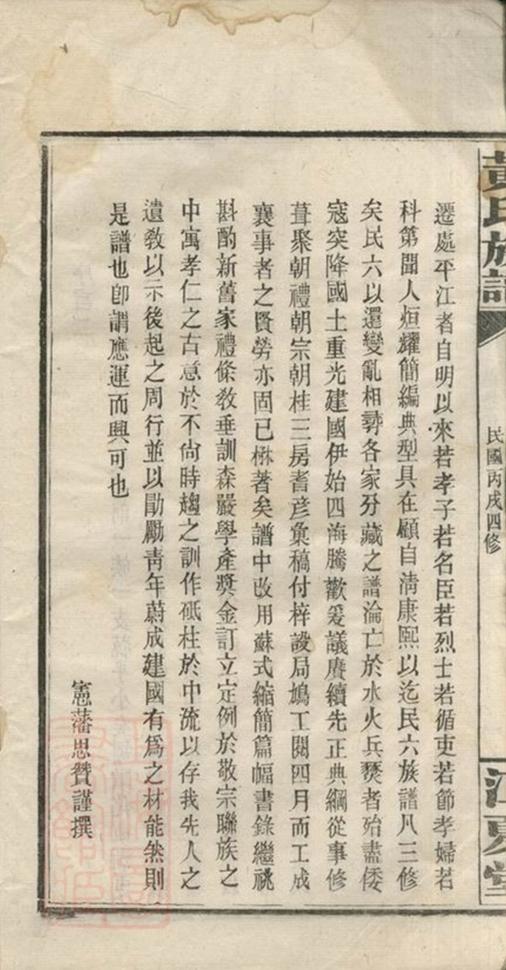 黃氏族譜
民國丙戌四修
江夏堂
遷處平江者自明以來若孝子若名臣若烈士若循吏若節孝婦若
科第聞人烜耀簡編典型具在顧自淸康熙以迄民六族譜凡三修
矣民六以還變亂相尋各家分藏之譜淪亡於水火兵燹者殆盡倭
寇突降國土重光建國伊始四海騰歡爰議賡續先正典綱從事修
葺聚朝禮朝宗朝桂三房耆彥彙稿付梓設局鳩工閱四月而工成
襄事者之賢勞亦固已楙著矣譜中改用蘇式縮簡篇幅書錄繼祧
斟酌新舊家禮條敎垂訓森嚴學產獎金訂立定例於敬宗聯族之
中寓孝仁之古意於不尙時趨之訓作砥柱於中流以存我先人之
遺敎以示後起之周行並以勖勵靑年蔚成建國有爲之材能然則
是譜也卽謂應運而興可也
憲藩思贊謹撰